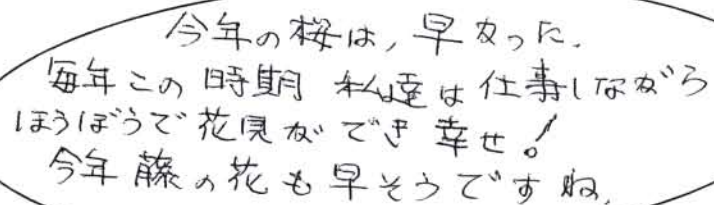 今年の桜は，早かった．
毎年この時期 私達は仕事しながら
ほうぼうで花見ができ幸せ！
今年藤の花も早そうですね．